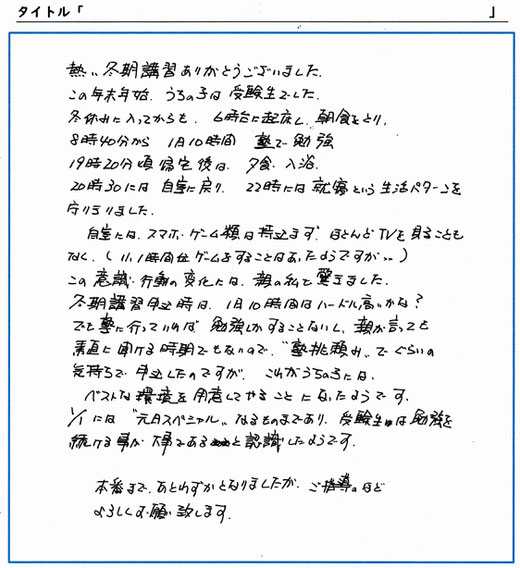 タイトル「 」
熱い冬期講習ありがとうございました。
この年末年始、うちの子は受験生でした。
冬休みに入ってからも、6時台に起床し、朝食をとり、
8時40分から 1日10時間 塾で勉強
19時20分頃帰宅後は、夕食、入浴、
20時30には自室に戻り、22時には就寝という生活パターンを
守り切りました。
自室には、スマホ・ゲーム類は持込まず、ほとんどTVを見ることも
なく、(1日1時間位ゲームをすることはあったようですが…)
この意識・行動の変化には、親の私も驚きました。
冬期講習申込時は、1日10時間はハードル高いかな?
でも塾に行っていれば勉強しかすることないし、親が言っても
素直に聞ける時期でもないので、"塾挑頼み"でぐらいの
気持ちで申込したのですが、これがうちの子には、
ベストな環境を用意してやることになったようです。
1/1には"元日スペシャル"なるものまであり、受験生は勉強を
続ける事が大事であると認識したようです。
本番まで、あとわずかとなりましたが、ご指導のほど
よろしくお願い致します。